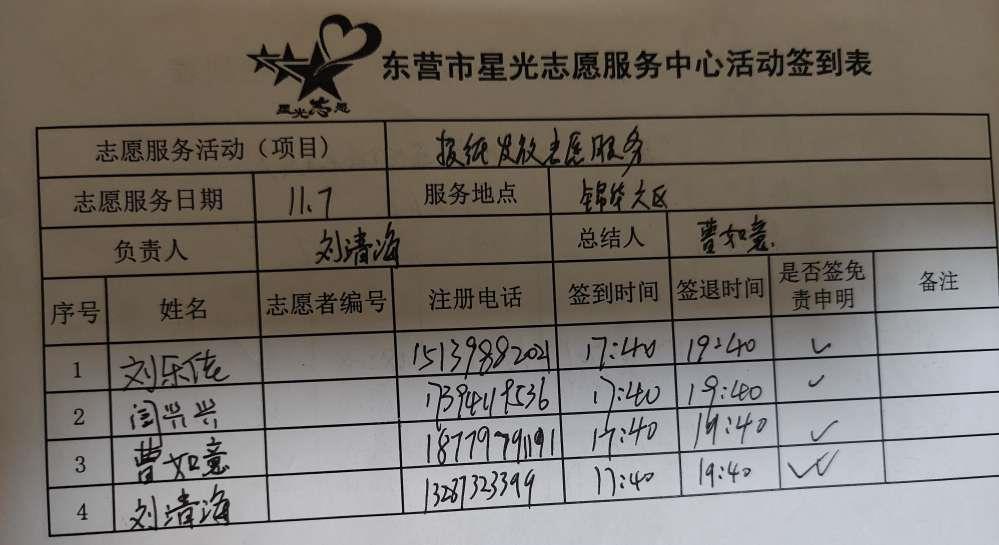 星光志愿
东营市星光志愿服务中心活动签到表
志愿服务活动（项目） 报纸发放志愿服务
志愿服务日期 11.7 服务地点 锦华大区
负责人 刘清海 总结人 曹如意
序号 姓名 志愿者编号 注册电话 签到时间 签退时间 是否签免责申明 备注
1 刘乐佳 15139882021 17:40 19:40 ✓
2 闫兴兴 17:40 19:40 ✓
3 曹如意 18779791191 17:40 19:40 ✓
4 刘清海 13287323399 17:40 19:40 ✓